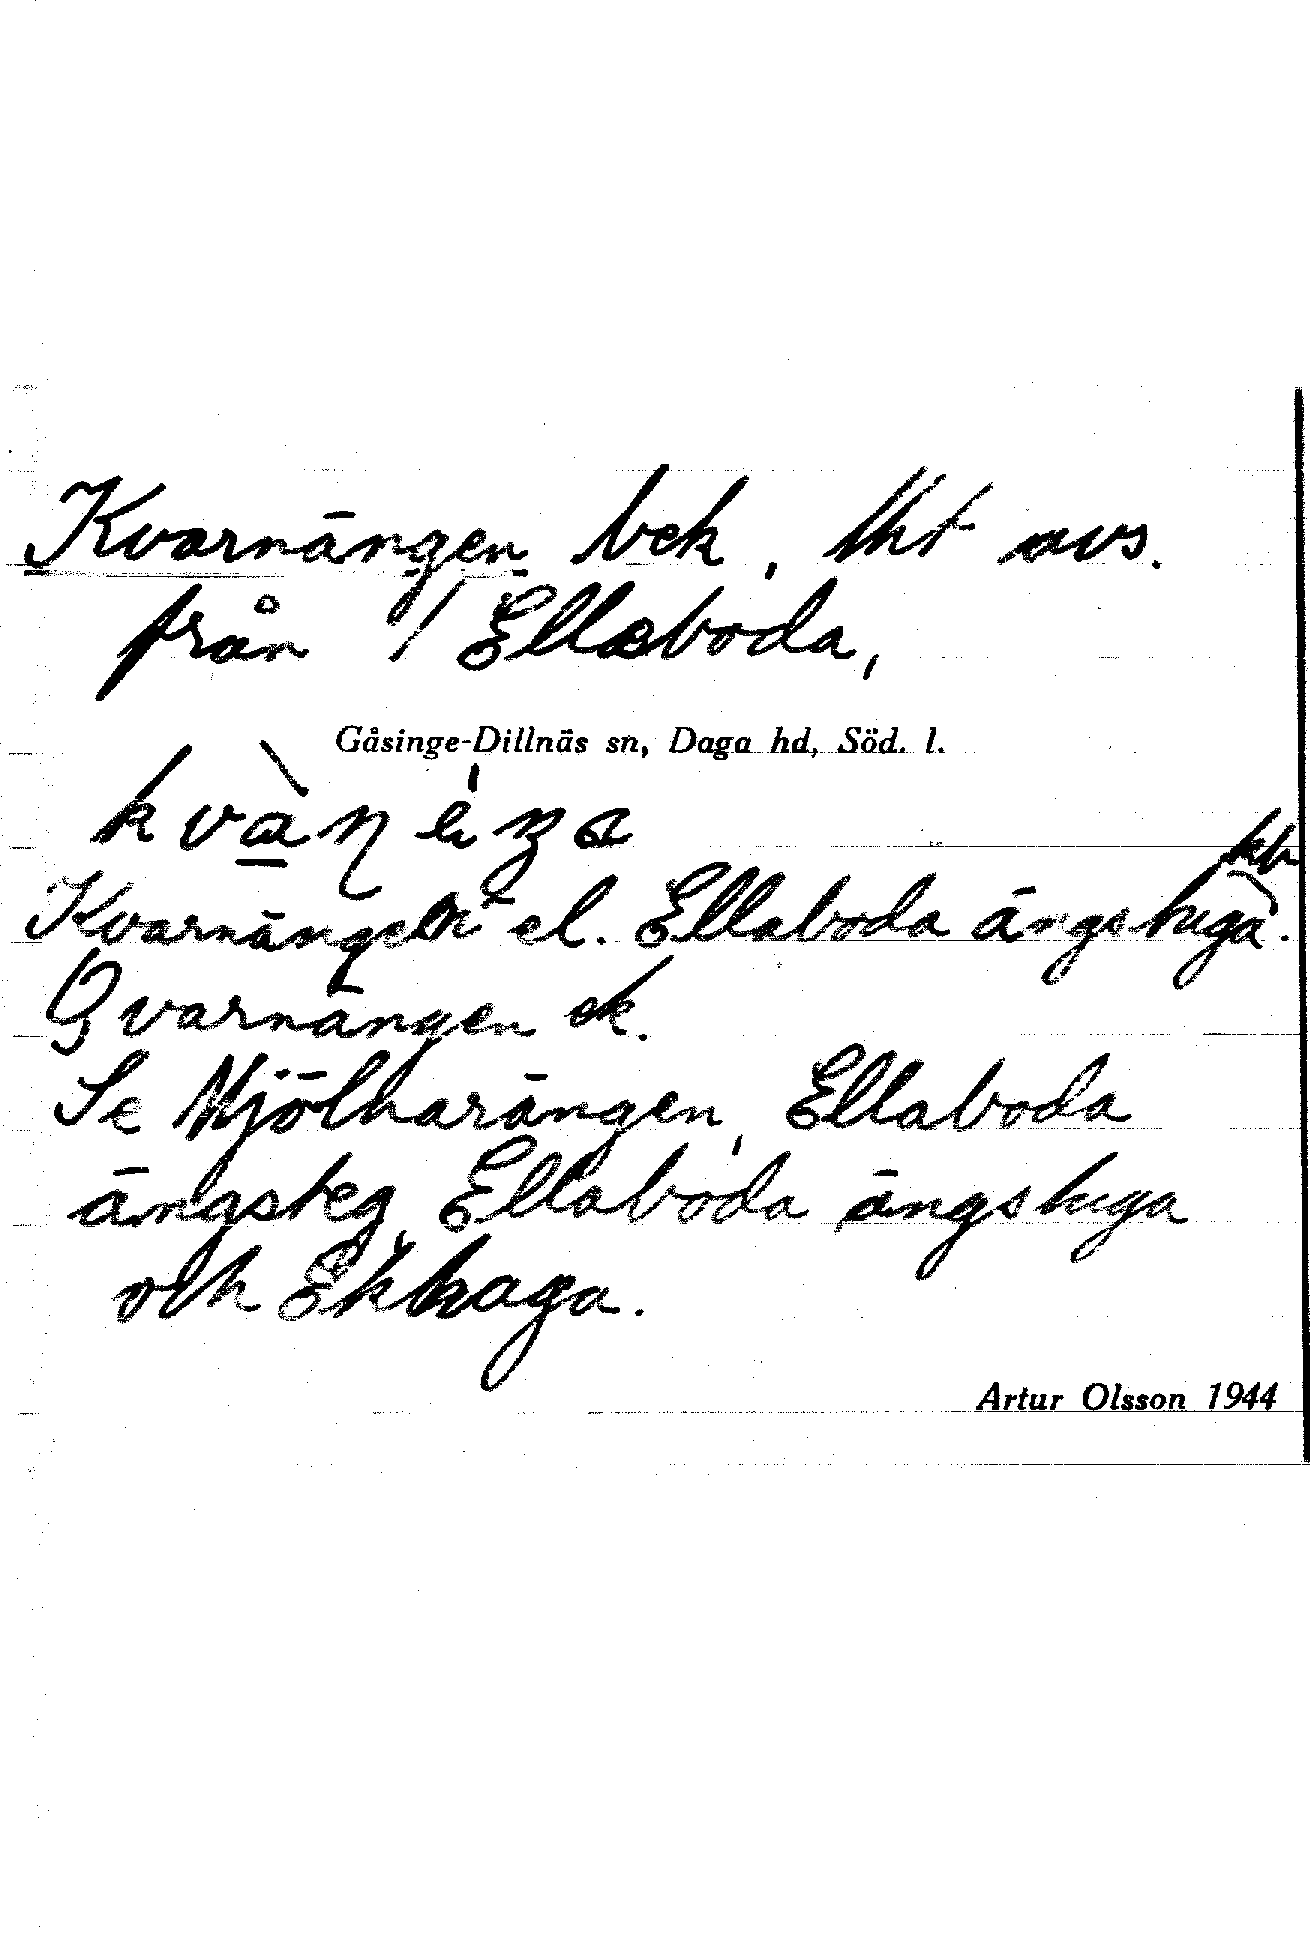 Kvarnängen bek, lht avs.
från / Ellaboda,
Gåsinge-Dillnäs sn, Daga hd, Söd. l.
Kvarnängen el. Ellaboda ängstuga kb.
Qvarnängen ek.
Se Mjölnarängen, Ellaboda
ängsteg, Ellaboda ängstuga
och Ekhaga.
Artur Olsson 1944